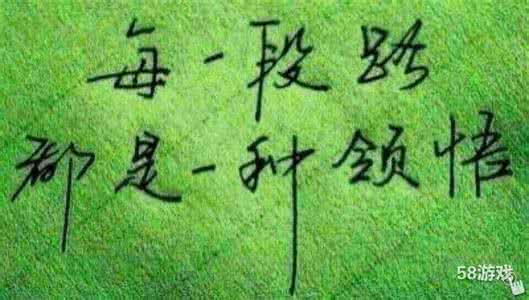 每一段路
都是一种领悟
58游戏